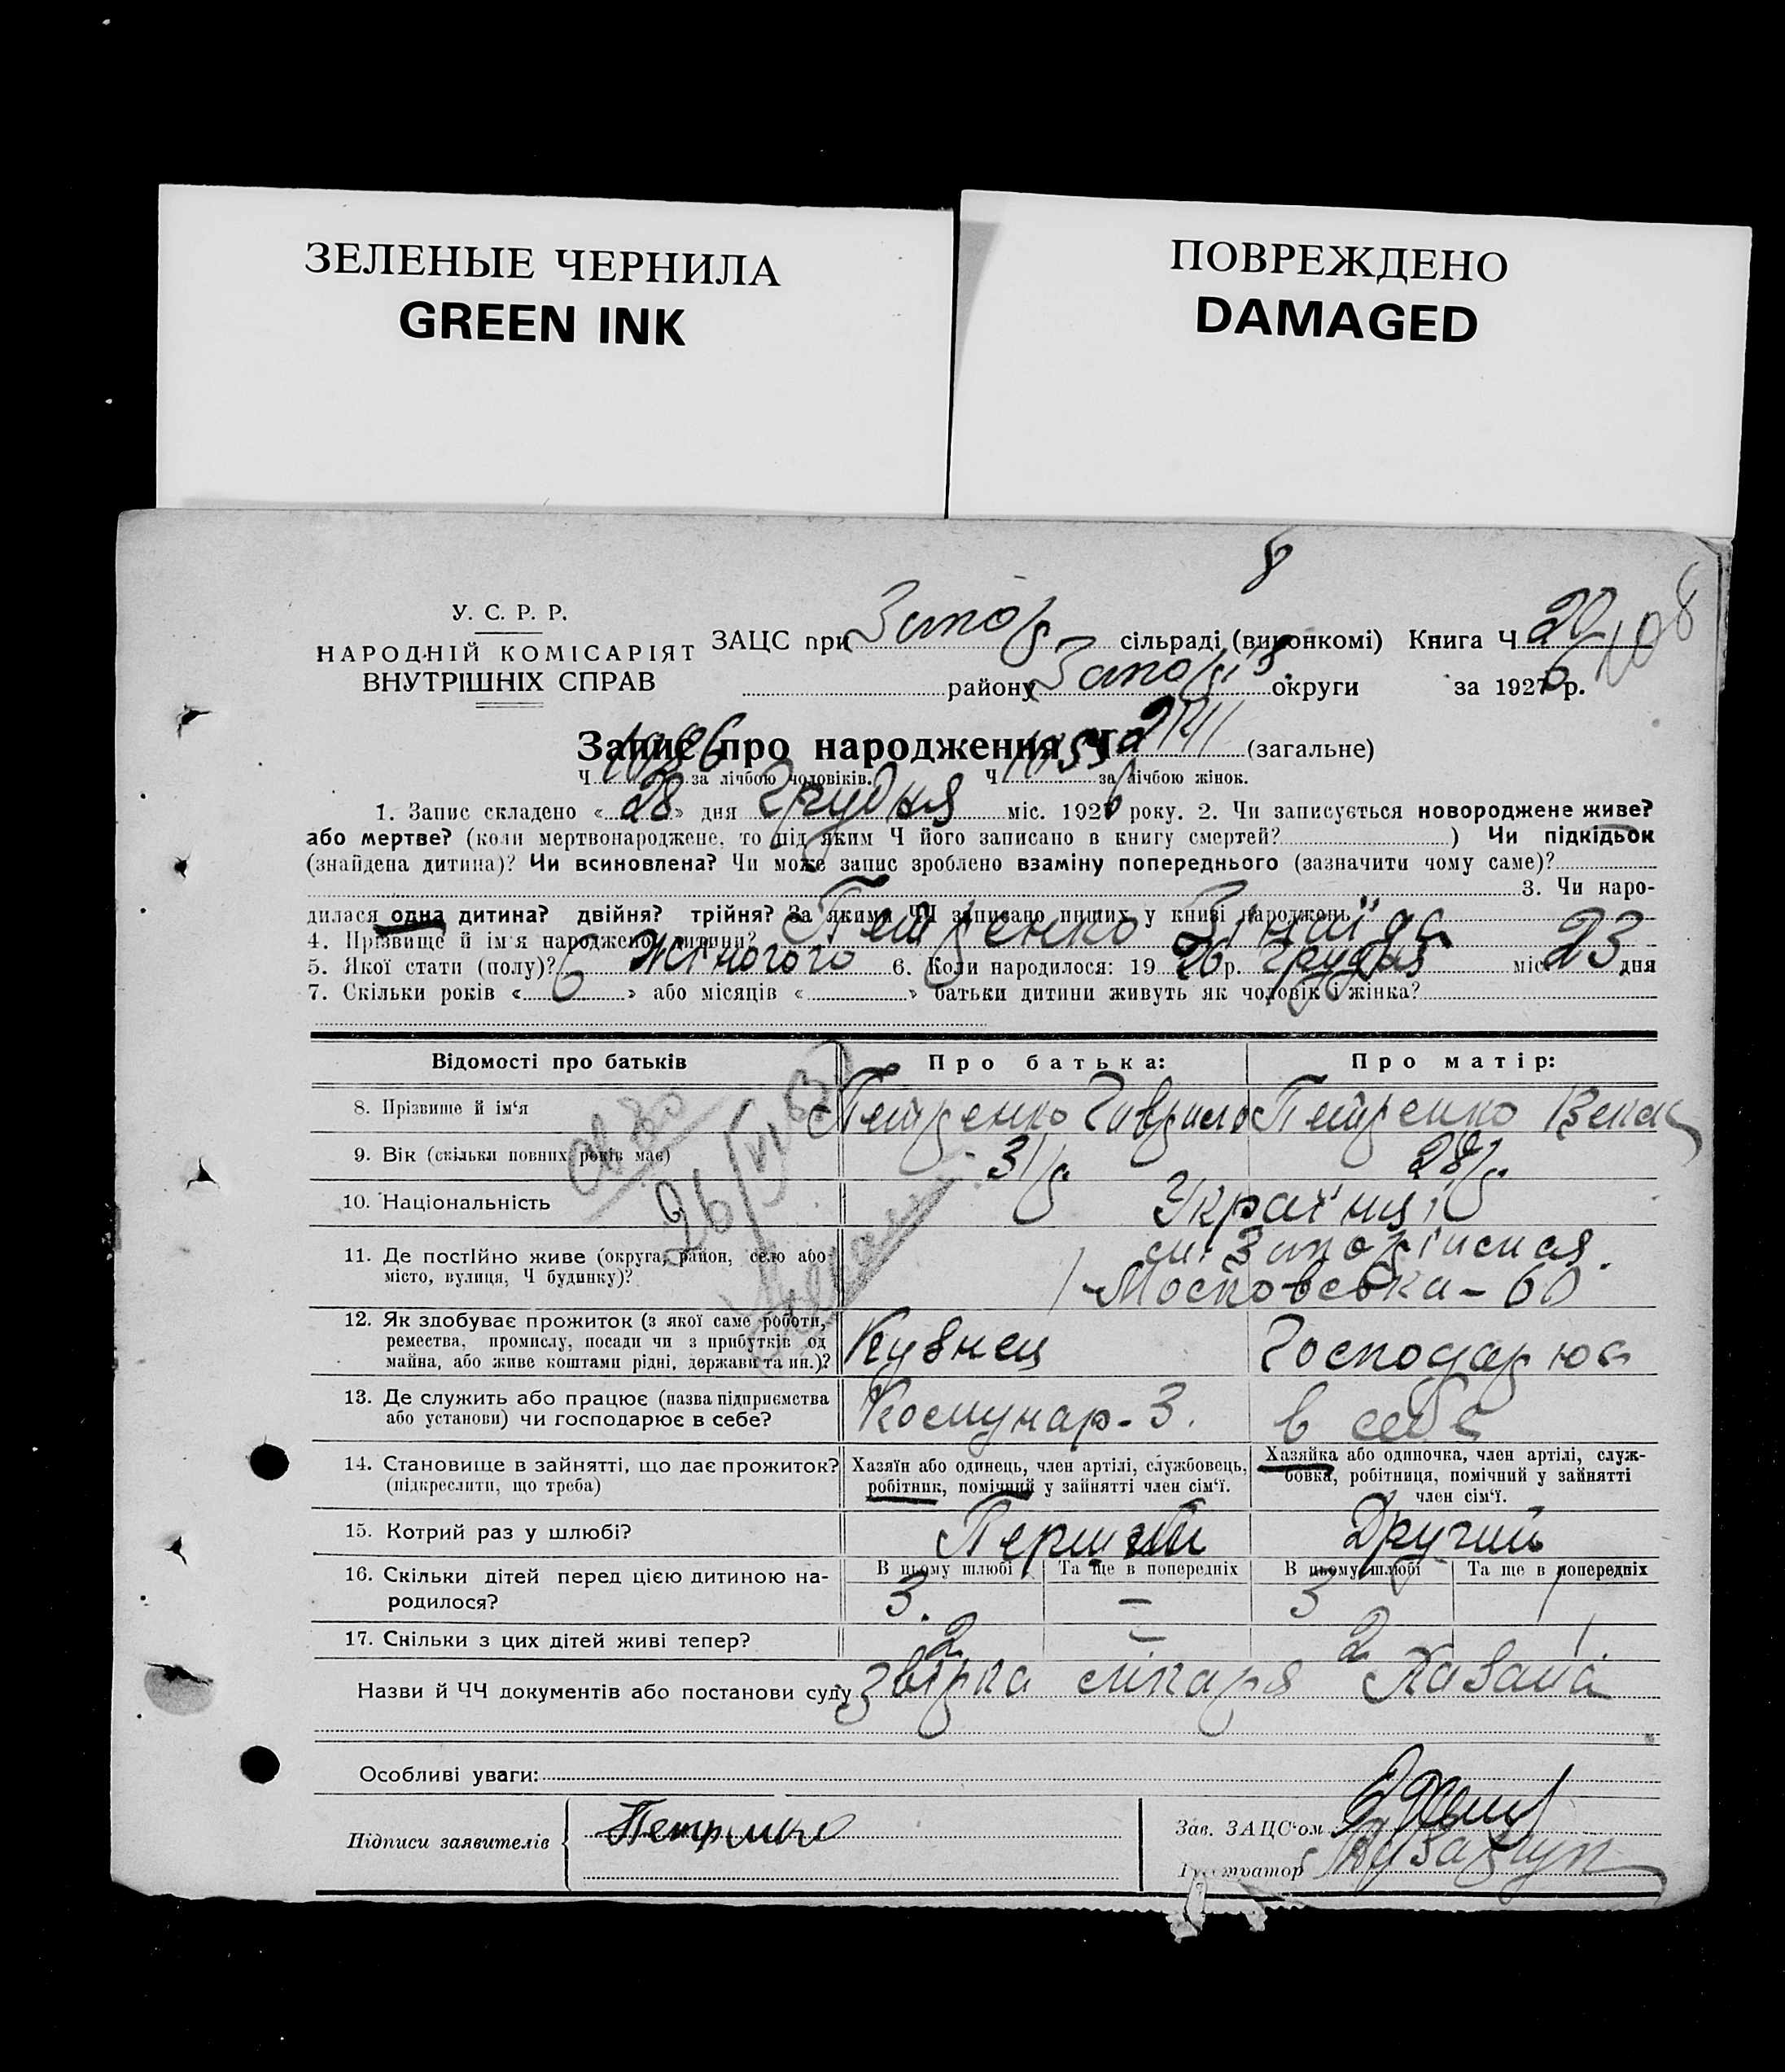 ЗЕЛЕНЫЕ ЧЕРНИЛА
GREEN INK
ПОВРЕЖДЕНО
DAMAGED
8
У. С. Р. Р.
НАРОДНІЙ КОМІСАРІЯТ
ВНУТРІШНІХ СПРАВ
ЗАЦС при Запор сільраді (виконкомі) Книга Ч 20
108
району Запоріз округи за 1926 р.
Запис про народження Ч (загальне)
Ч за лічбою чоловіків. Ч за лічбою жінок.
1. Запис складено «28» дня Грудня міс. 1926 року. 2. Чи записується новороджене живе?
або мертве? (коли мертвонароджене, то під яким Ч його записано в книгу смертей? ) Чи підкідьок
(знайдена дитина)? Чи всиновлена? Чи може запис зроблено взаміну попереднього (зазначити чому саме)?
3. Чи наро-
дилася одна дитина? двійня? трійня? За якими ЧЧ записано инших у книзі народжень
4. Прізвище й ім'я народженої дитини? Петренко Зінаїда
5. Якої стати (полу)? Жіночого 6. Коли народилося: 1926 р. Грудня міс. 23 дня
7. Скільки років «6» або місяців « » батьки дитини живуть як чоловік і жінка?
Відомості про батьків Про батька: Про матір:
8. Прізвише й ім'я Петренко Гаврило Петренко
9. Вік (скільки повних років має) 31 р. 28 р.
10. Національність Українці
11. Де постійно живе (округа, район, село або
місто, вулиця, Ч будинку)?
Московська - 60
12. Як здобуває прожиток (з якої саме роботи,
ремества, промислу, посади чи з прибутків од
майна, або живе коштами рідні, держави та ин.)?
Кузнец Господарює
13. Де служить або працює (назва підприємства
або установи) чи господарює в себе?
Комунар - З. в себе
14. Становище в зайнятті, що дає прожиток?
(підкреслити, що треба)
Хазяїн або одинець, член артілі, службовець,
робітник, помічний у зайнятті член сім'ї.
Хазяйка або одиночка, член артілі, служ-
бовка, робітниця, помічний у зайнятті
член сім'ї.
15. Котрий раз у шлюбі? Перший Другий
16. Скільки дітей перед цією дитиною на-
родилося?
В цьому шлюбі Та ще в попередніх В цьому шлюбі Та ще в попередніх
3. — 3 1
17. Скільки з цих дітей живі тепер? 2 — 2 1
Назви й ЧЧ документів або постанови суду лікаря
Особливі уваги:
Підписи заявителів Петренко
Зав. ЗАЦС'ом